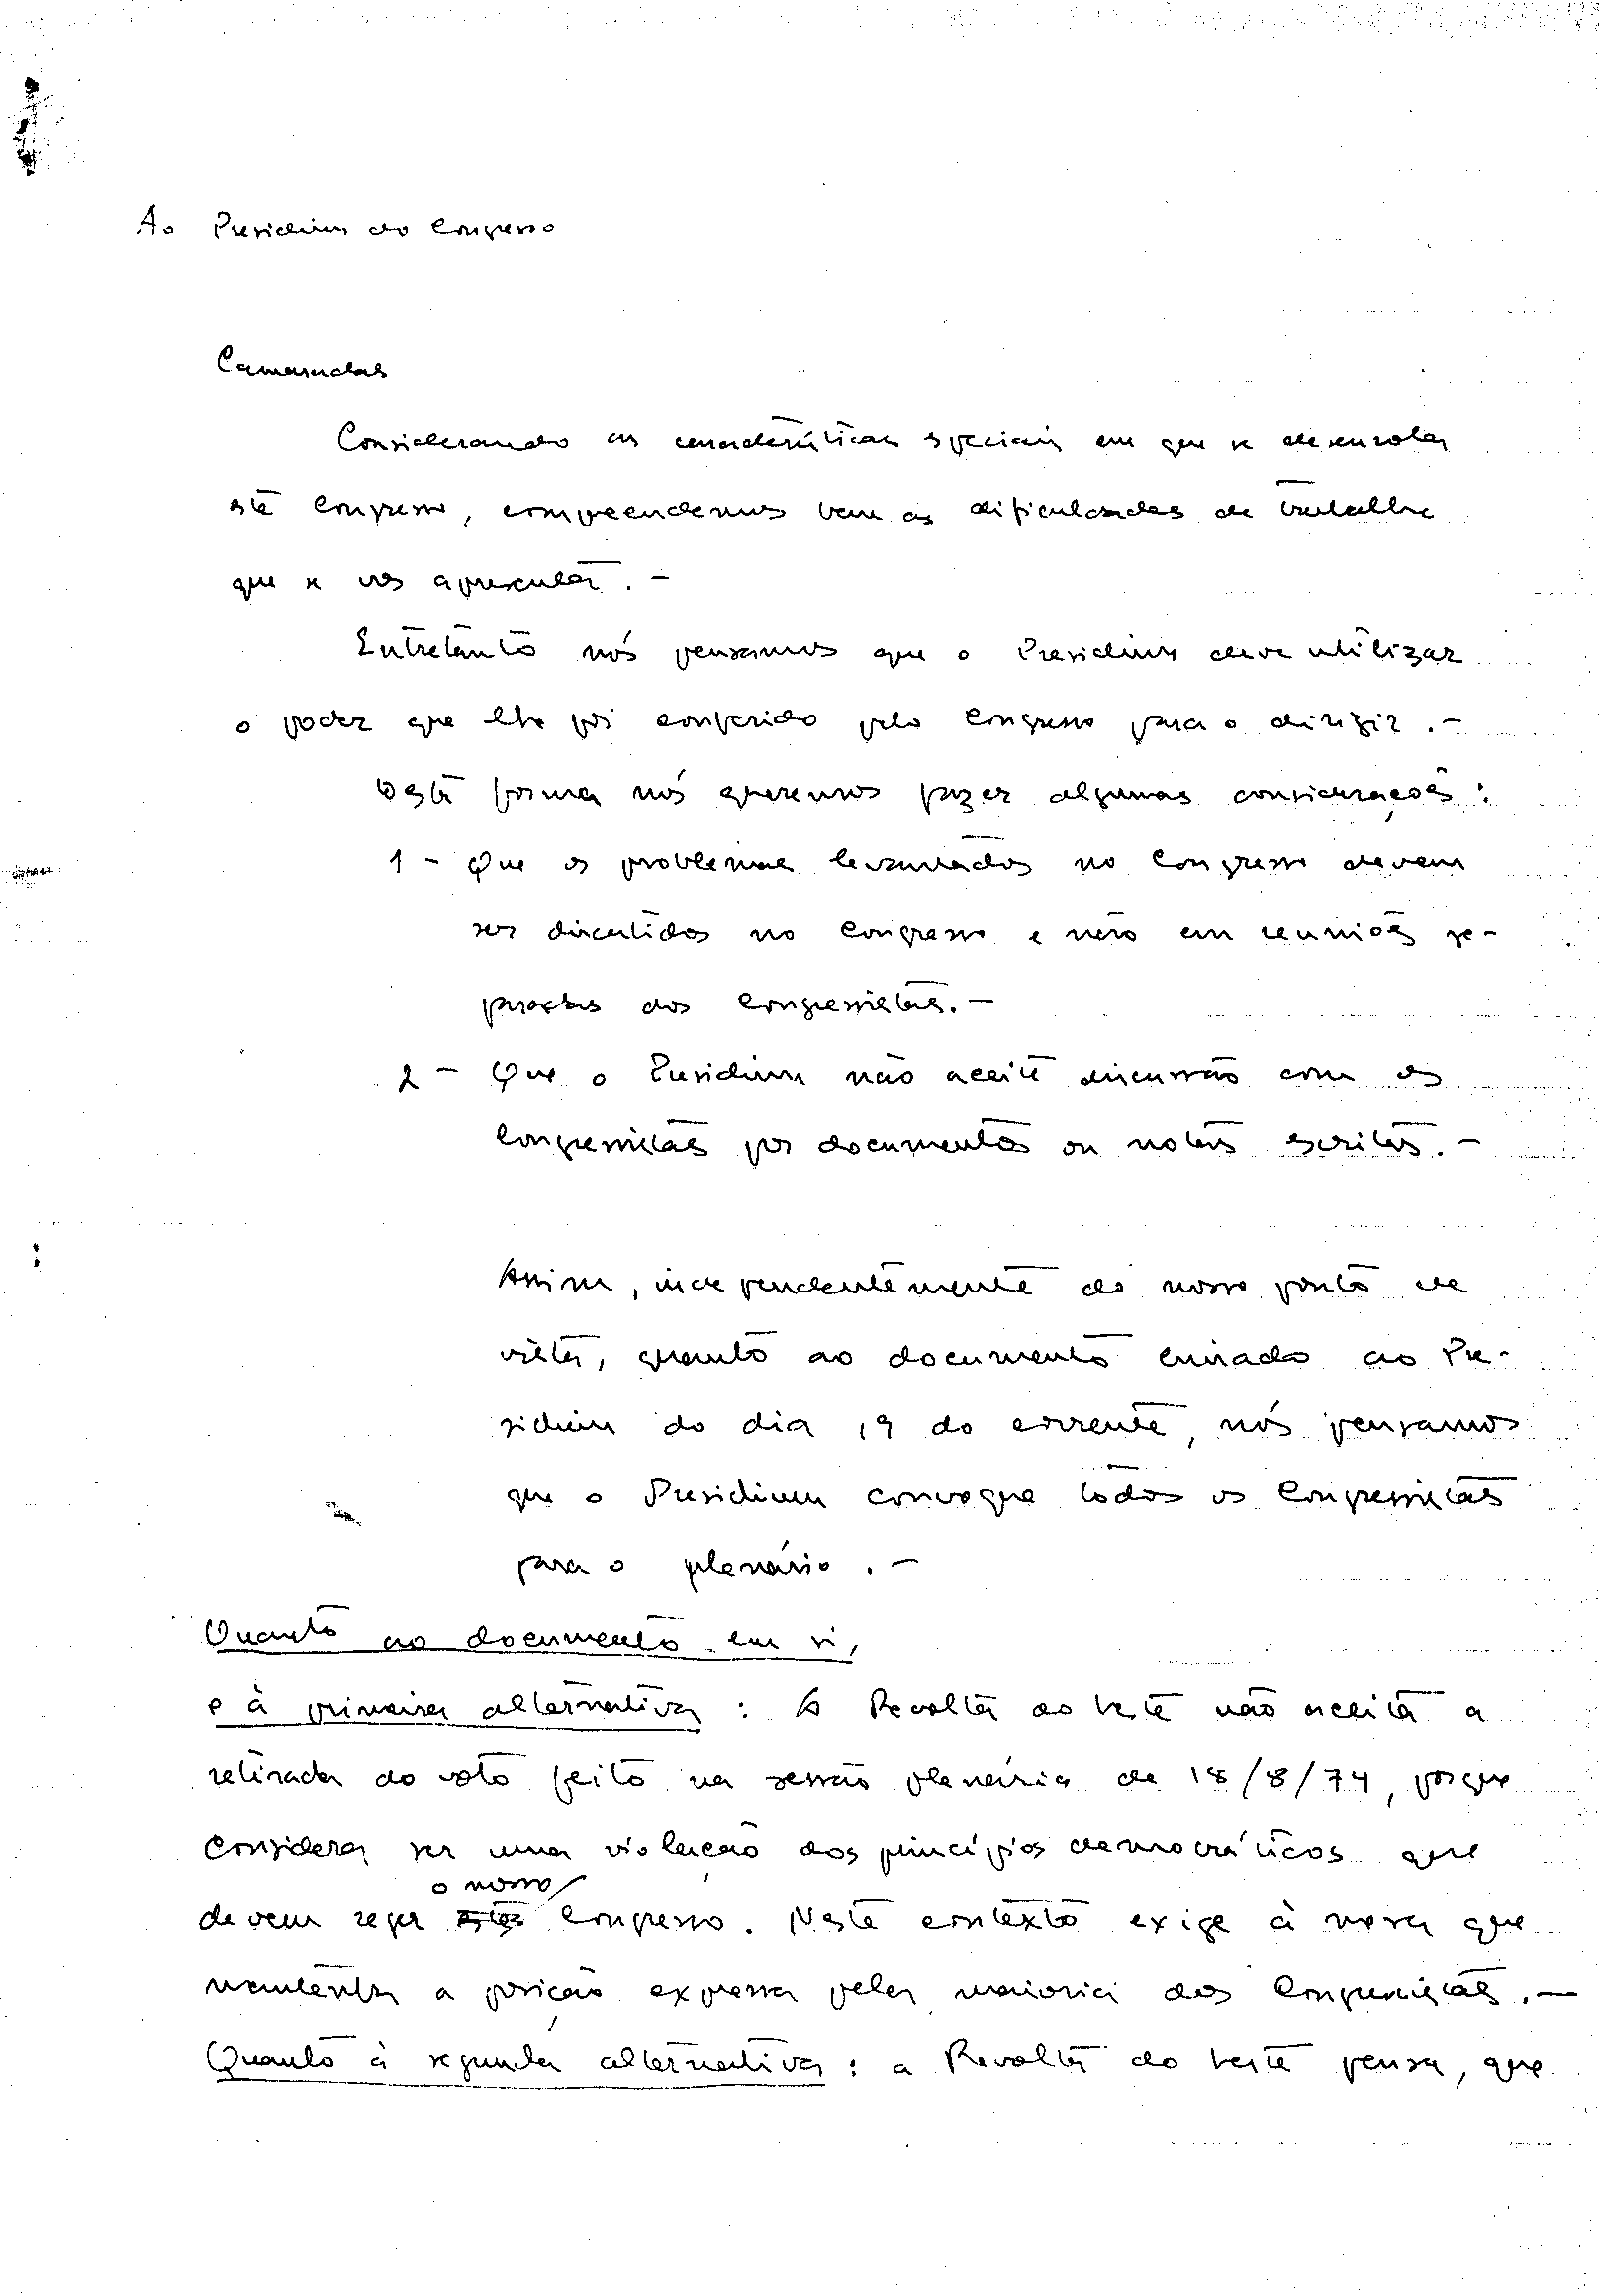 Ao Presidium do Congresso
Camaradas
Considerando as características especiais em que se desenrola
este Congresso, compreendemos bem as dificuldades de trabalho
que se vos apresenta. –
Entretanto nós pensamos que o Presidium deve utilizar
o poder que lhe foi conferido pelo Congresso para o dirigir. –
Desta forma nós queremos fazer algumas considerações:
1 – Que os problemas levantados no Congresso devem
ser discutidos no Congresso e não em reuniões se-
paradas dos Congressistas. –
2 – Que o Presidium não aceite discussão com os
Congressistas por documentos ou notas escritas. –
Assim, independentemente do nosso ponto de
vista, quanto ao documento enviado ao Pre-
sidium do dia 19 do corrente, nós pensamos
que o Presidium convoque todos os Congressistas
para o plenário. –
Quanto ao documento em si,
e à primeira alternativa: A Revolta do Leste não aceita a
retirada do voto feito na sessão plenária de 18/8/74, porque
considera ser uma violação dos princípios democráticos que
o nosso
devem reger este Congresso. Neste contexto exige à mesa que
mantenha a posição expressa pela maioria dos Congressistas. –
Quanto à segunda alternativa: a Revolta do Leste pensa, que